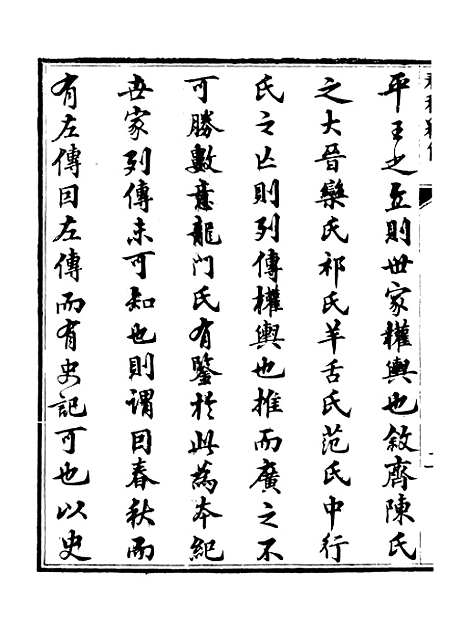 平王之立則世家權輿也敘齊陳氏
之大晉欒氏祁氏羊舌氏范氏中行
氏之亡則列傳權輿也推而廣之不
可勝數意龍門氏有鑒於此為本紀
世家列傳未可知也則謂因春秋而
有左傳因左傳而有史記可也以史